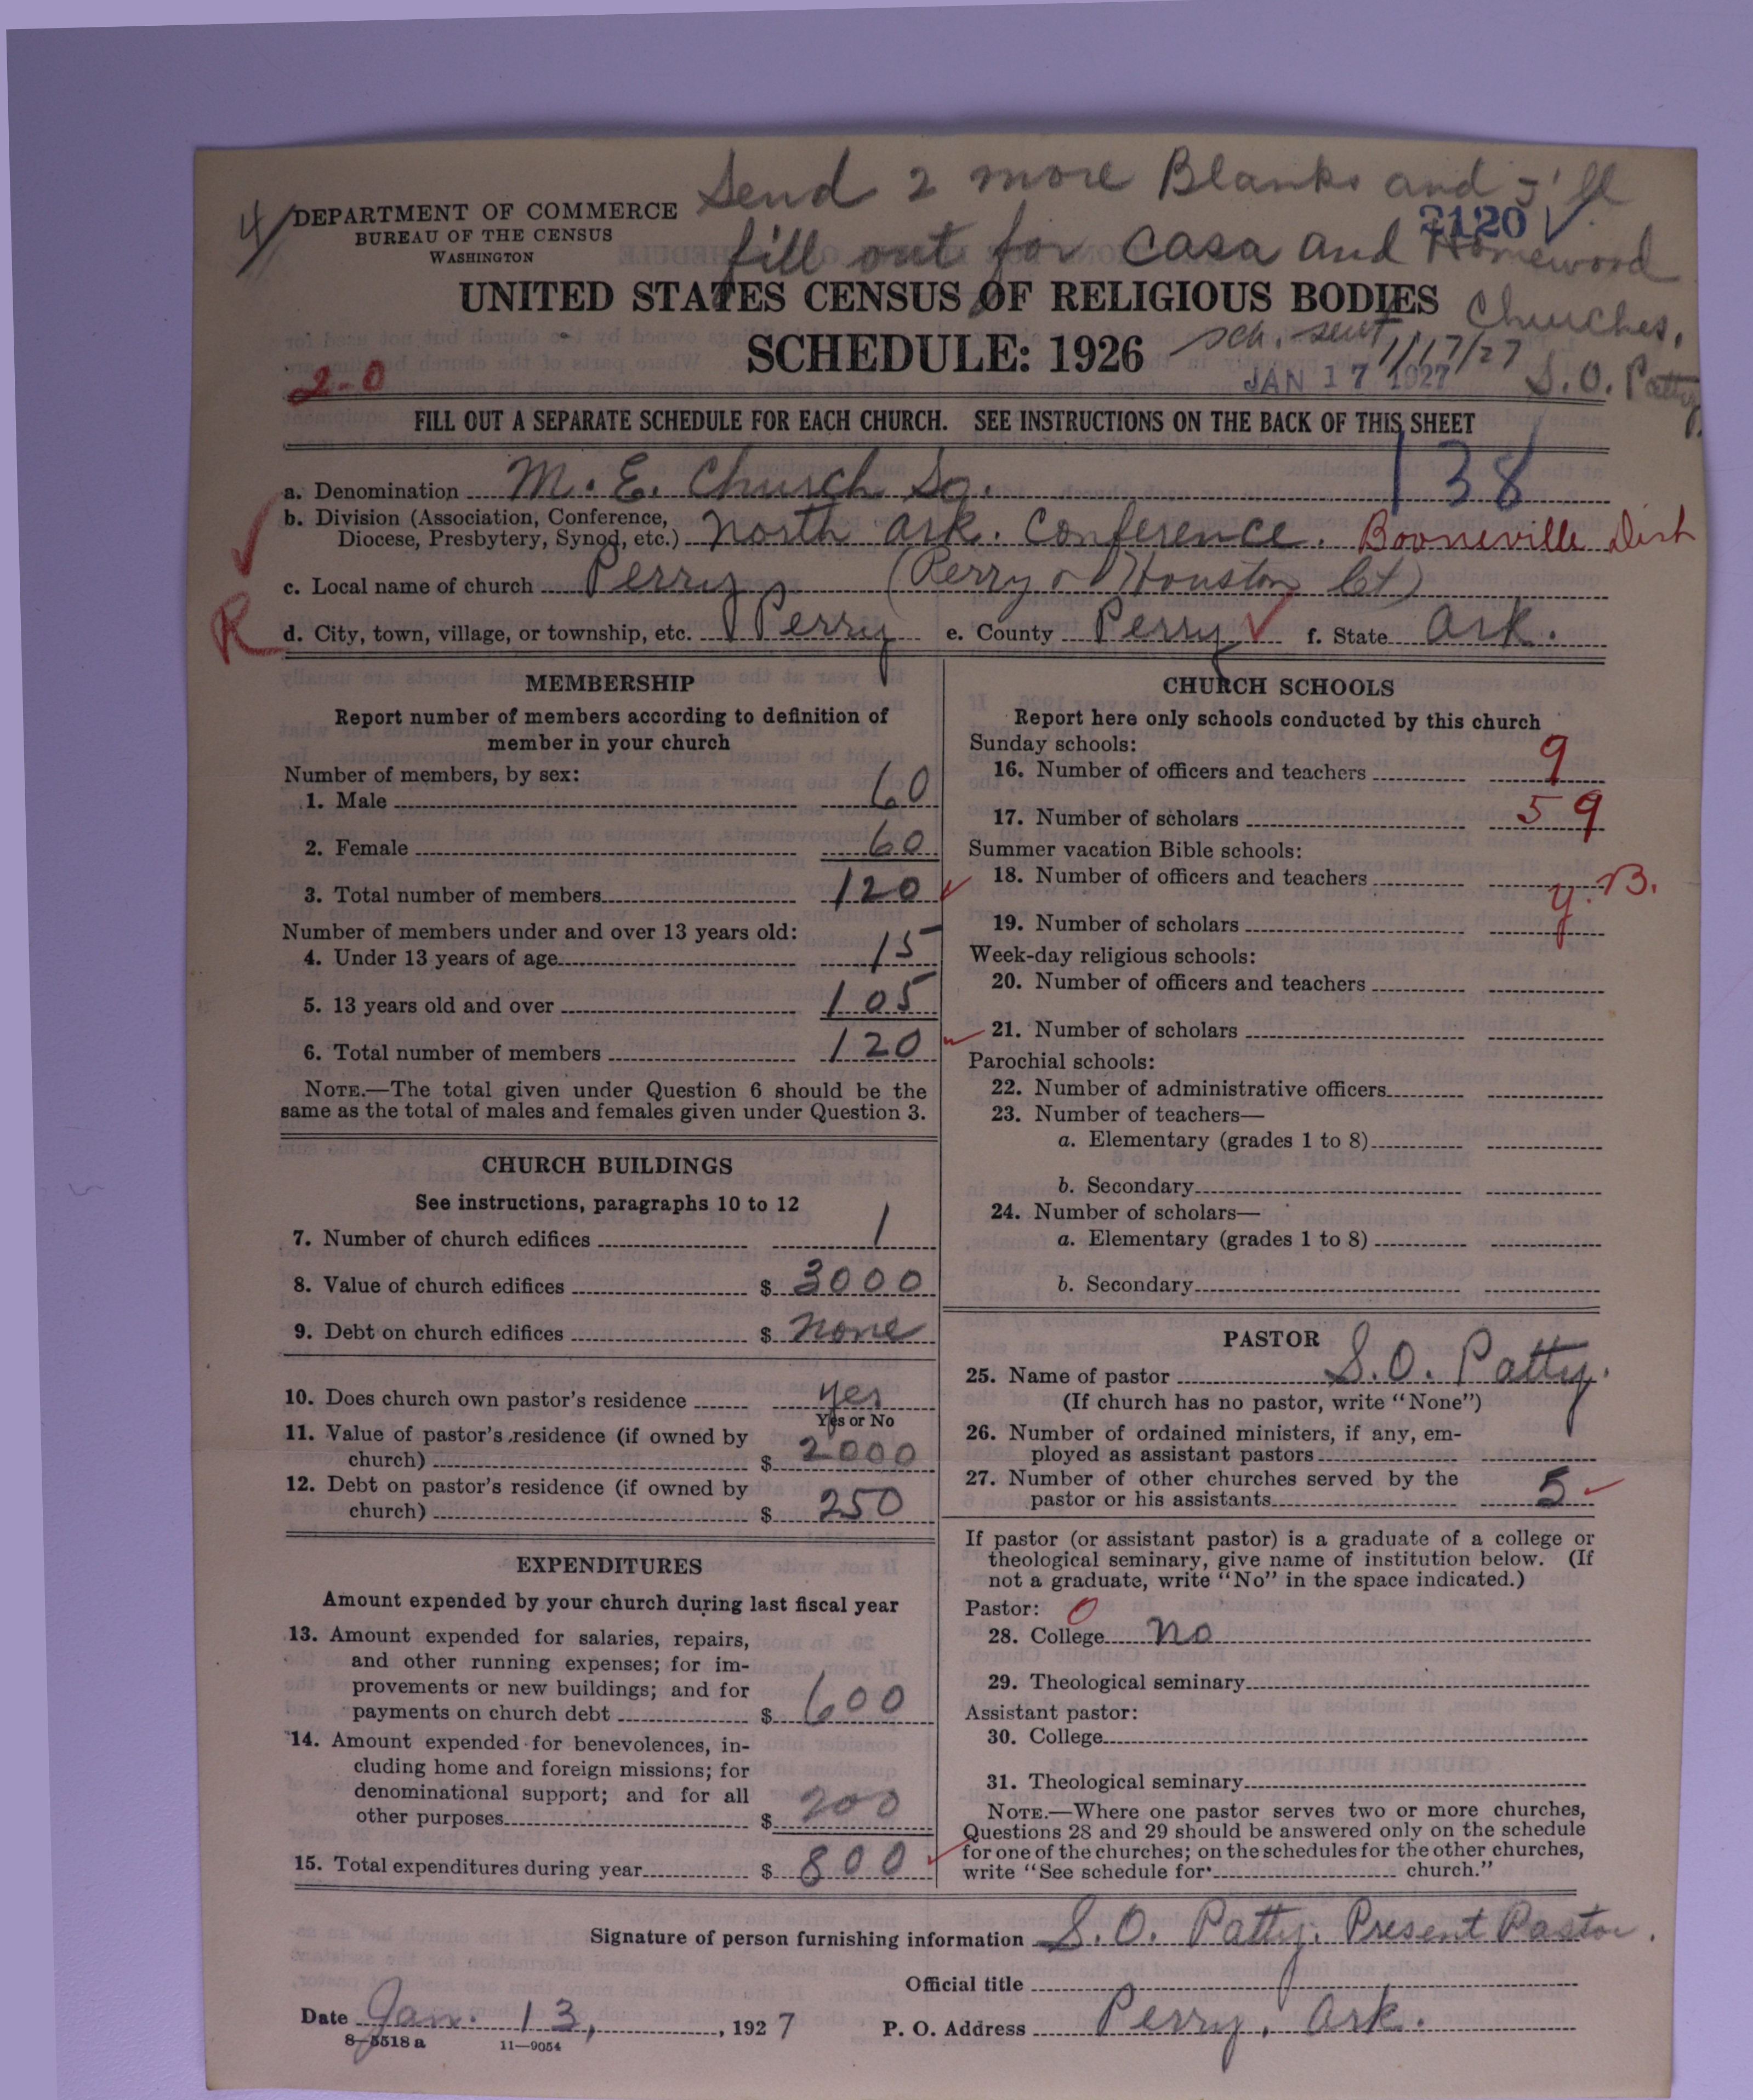 Send 2 more Blanks and I'll
4 DEPARTMENT OF COMMERCE
BUREAU OF THE CENSUS
WASHINGTON
2120
fill out for Casa and Homewood
Churches,
UNITED STATES CENSUS OF RELIGIOUS BODIES
SCHEDULE: 1926
sch. sent 1/17/27
JAN 17 1927
S. O. Patty
2-0
FILL OUT A SEPARATE SCHEDULE FOR EACH CHURCH. SEE INSTRUCTIONS ON THE BACK OF THIS SHEET
138
a. Denomination M. E. Church So.
b. Division (Association, Conference,
Diocese, Presbytery, Synod, etc.) North Ark. Conference. Booneville Dist
c. Local name of church Perry (Perry & Houston Ct)
R
d. City, town, village, or township, etc. Perry e. County Perry f. State Ark.
MEMBERSHIP
Report number of members according to definition of
member in your church
Number of members, by sex:
1. Male 60
2. Female 60
3. Total number of members 120
Number of members under and over 13 years old:
4. Under 13 years of age 15
5. 13 years old and over 105
6. Total number of members 120
NOTE.—The total given under Question 6 should be the
same as the total of males and females given under Question 3.
CHURCH BUILDINGS
See instructions, paragraphs 10 to 12
7. Number of church edifices 1
8. Value of church edifices $ 3000
9. Debt on church edifices $ none
10. Does church own pastor's residence yes
Yes or No
11. Value of pastor's residence (if owned by
church) $ 2000
12. Debt on pastor's residence (if owned by
church) $ 250
EXPENDITURES
Amount expended by your church during last fiscal year
13. Amount expended for salaries, repairs,
and other running expenses; for im-
provements or new buildings; and for
payments on church debt $ 600
14. Amount expended for benevolences, in-
cluding home and foreign missions; for
denominational support; and for all
other purposes $ 200
15. Total expenditures during year $ 800
CHURCH SCHOOLS
Report here only schools conducted by this church
Sunday schools:
16. Number of officers and teachers 9
17. Number of scholars 59
Summer vacation Bible schools:
18. Number of officers and teachers
Y.B.
19. Number of scholars
Week-day religious schools:
20. Number of officers and teachers
21. Number of scholars
Parochial schools:
22. Number of administrative officers
23. Number of teachers—
a. Elementary (grades 1 to 8)
b. Secondary
24. Number of scholars—
a. Elementary (grades 1 to 8)
b. Secondary
PASTOR
25. Name of pastor S. O. Patty.
(If church has no pastor, write "None")
26. Number of ordained ministers, if any, em-
ployed as assistant pastors
27. Number of other churches served by the
pastor or his assistants 5
If pastor (or assistant pastor) is a graduate of a college or
theological seminary, give name of institution below. (If
not a graduate, write "No" in the space indicated.)
Pastor: 0
28. College no
29. Theological seminary
Assistant pastor:
30. College
31. Theological seminary
NOTE.—Where one pastor serves two or more churches,
Questions 28 and 29 should be answered only on the schedule
for one of the churches; on the schedules for the other churches,
write "See schedule for church."
Signature of person furnishing information S. O. Patty. Present Pastor.
Official title
Date Jan. 13, 1927
P. O. Address Perry, Ark.
8-5518 a 11-9054